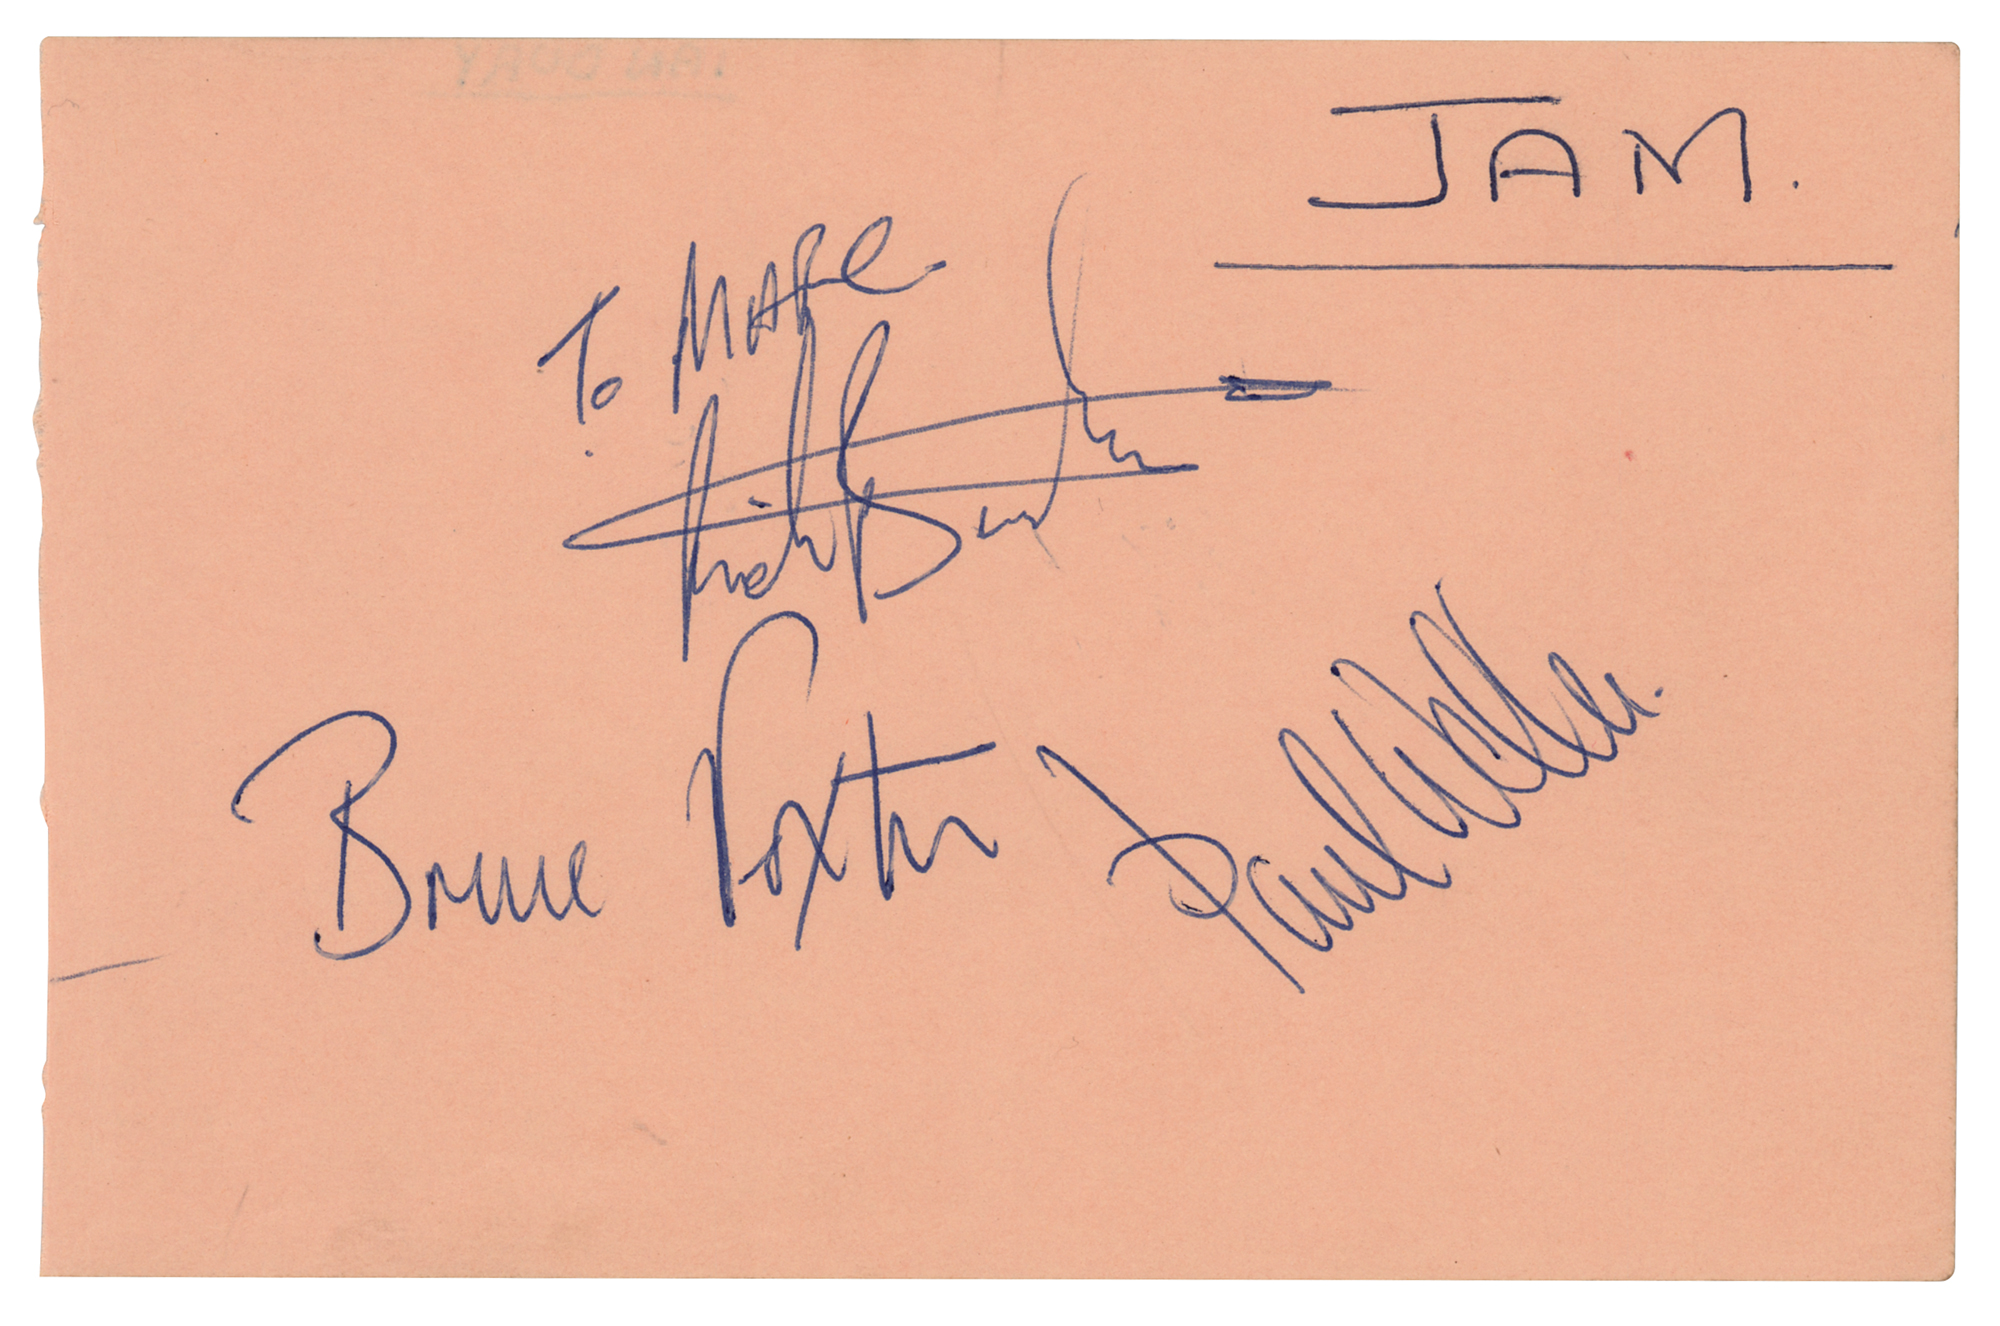 JAM.
To MARC
Rick Buckler
Bruce Foxton
Paul Weller.